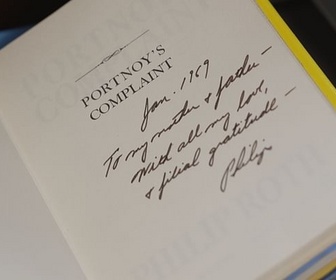 PORTNOY'S
COMPLAINT
Jan. 1969
To my mother & father —
With all my love,
& filial gratitude —
Philip